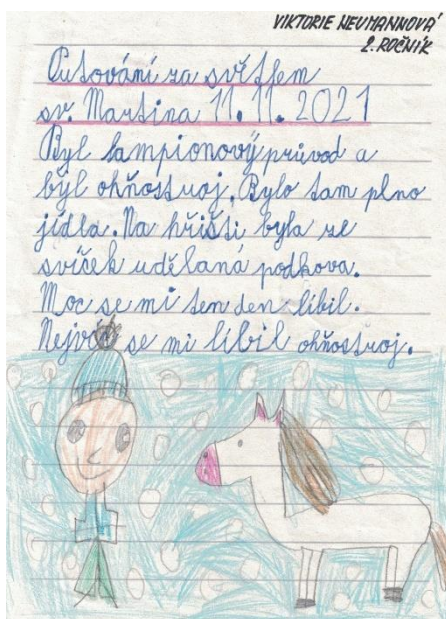 VIKTORIE NEUMANNOVÁ
2. ROČNÍK
Putování za světlem
sv. Martina 11. 11. 2021
Byl lampionový průvod a
byl ohňostroj. Bylo tam plno
jídla. Na hřišti byla ze
svíček udělaná podkova.
Moc se mi ten den líbil.
Nejvíc se mi líbil ohňostroj.